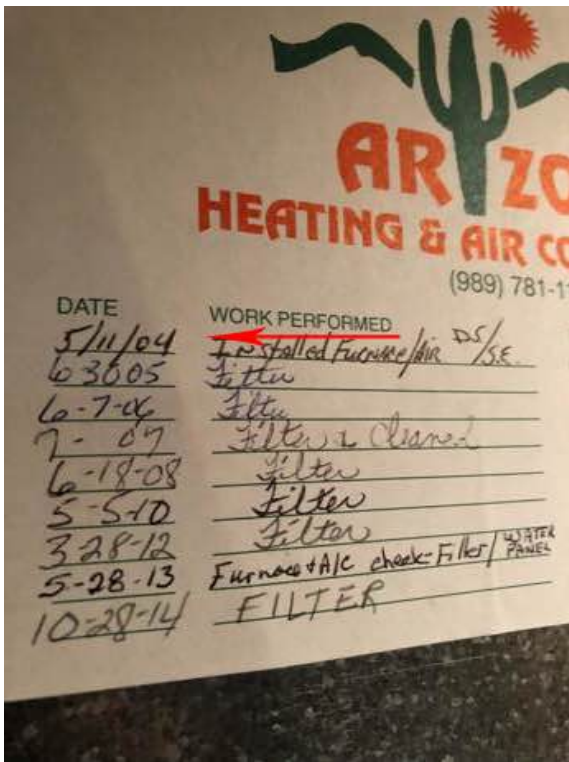 ARIZO
HEATING & AIR CO
(989) 781-1
DATE WORK PERFORMED
5/11/04 Installed Furnace/Air DS/S.E.
6 30 05 Filter
6-7-06 Filter
7- 07 Filter & Cleaned
6-18-08 Filter
5-5-10 Filter
3-28-12 Filter
5-28-13 Furnace + A/C check-Filter/WATER PANEL
10-28-14 FILTER